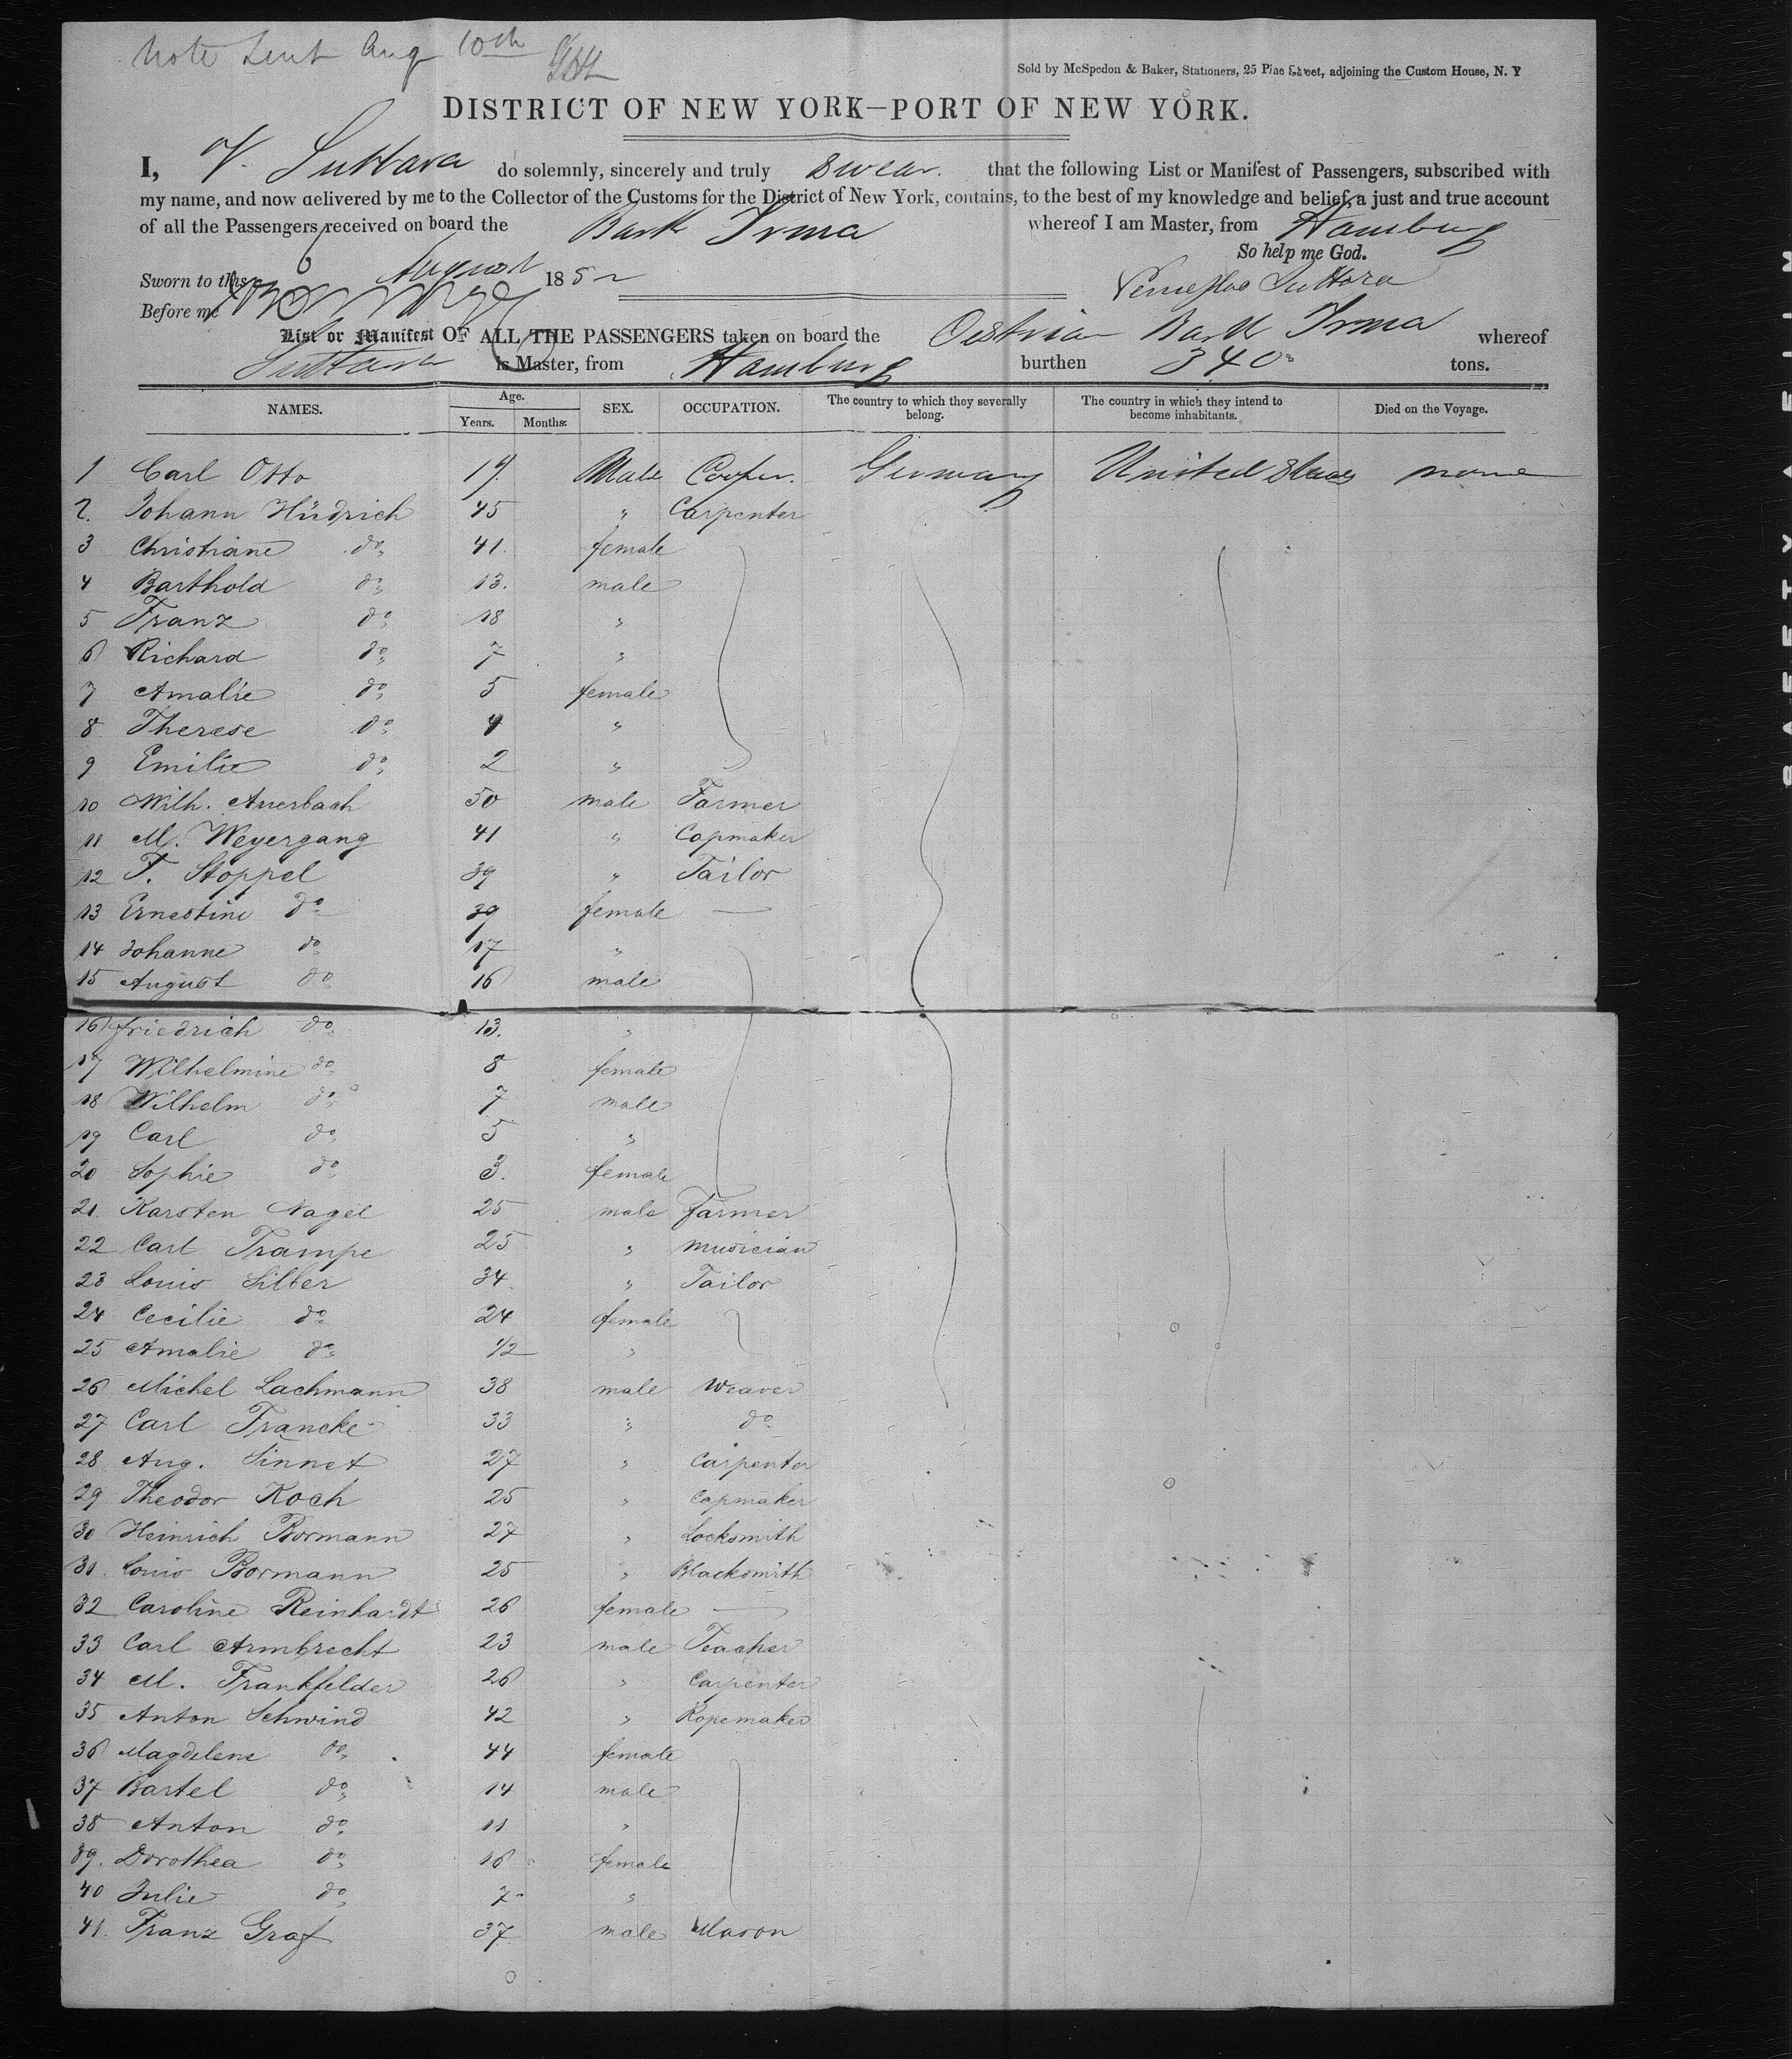 Note Sent Aug 10th
Sold by McSpedon & Baker, Stationers, 25 Pine Street, adjoining the Custom House, N. Y
DISTRICT OF NEW YORK—PORT OF NEW YORK.
I, V. Suttora do solemnly, sincerely and truly swear. that the following List or Manifest of Passengers, subscribed with
my name, and now delivered by me to the Collector of the Customs for the District of New York, contains, to the best of my knowledge and belief, a just and true account
of all the Passengers received on board the Bark Irma whereof I am Master, from Hamburg
So help me God.
Sworn to this 6 August 185
Suttora
Before me
List or Manifest OF ALL THE PASSENGERS taken on board the Oestrian Bark Irma whereof
Suttora is Master, from Hamburg burthen 340 tons.
NAMES. Age. Years. Months. SEX. OCCUPATION. The country to which they severally belong. The country in which they intend to become inhabitants. Died on the Voyage.
1 Carl Otto 19. Male Cooper. Germany United States none
2. Johann Hüdrich 45 " Carpenter
3 Christiane do 41. female
4 Barthold do 13. male
5 Franz do 18 "
6 Richard do 7 "
7 Amalie do 5 female
8 Therese do 4 "
9 Emilie do 2 "
10 Wilh. Auerbach 50 male Farmer
11 M. Weyergang 41 " Capmaker
12 F. Stoppel 39 " Tailor
13 Ernestine do 39 female —
14 Johanne do 17 "
15 August do 16 male
16 friedrich do 13. "
17 Wilhelmine do 8 female
18 Wilhelm do 7 male
19 Carl do 5 "
20 Sophie do 3. female
21. Karsten Nagel 25 male Farmer
22 Carl Trampe 25 " musician
23 Louis Silber 34. " Tailor
24 Cecilie do 24 female
25 Amalie do 1/2 "
26 Michel Lachmann 38 male Weaver
27 Carl Francke 33 " do
28 Aug. Sinnet 27 " Carpenter
29 Theodor Koch 25 " Capmaker
30 Heinrich Bormann 27 " Locksmith
31. Louis Bormann 25 " Blacksmith
32 Caroline Reinhardt 26 female —
33 Carl Armbrecht 23 male Teacher
34 M. Frankfelder 26 " Carpenter
35 Anton Schwind 42 " Ropemaker
36 Magdelene do 44 female
37 Bartel do 14 male
38 Anton do 11 "
39. Dorothea do 16 female
40 Julie do 7 "
41. Franz Graf 37 male Mason